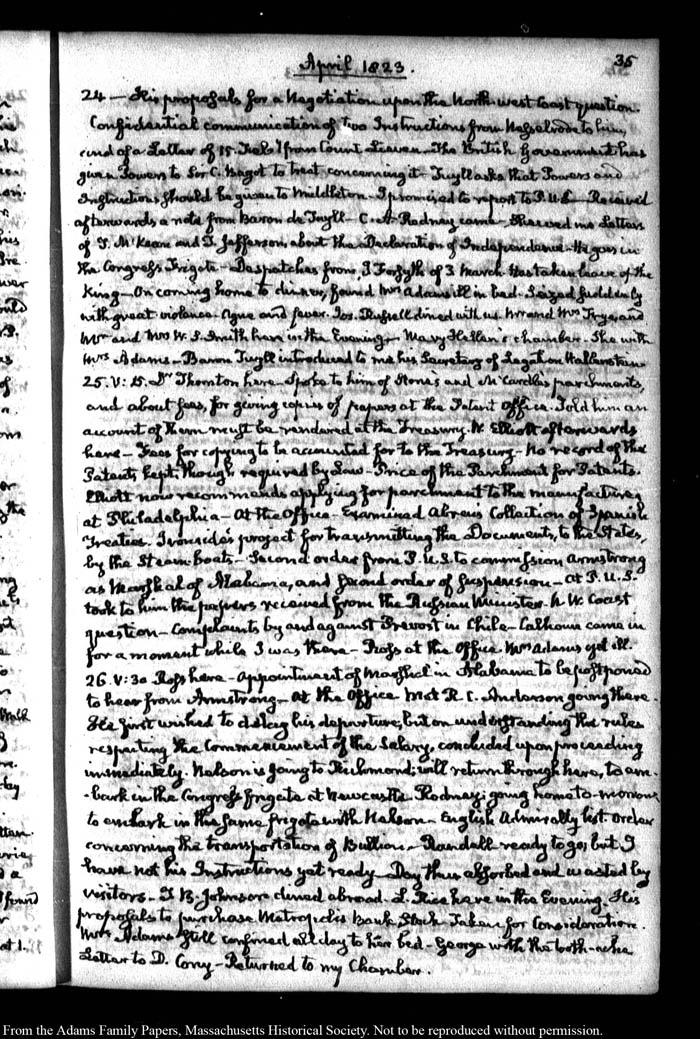 April 1823.
35
24 — His proposals for a Negotiation upon the North-west Coast question.
Confidential communication of two Instructions from Nesselrode to him,
and of a Letter of 15. Feby from Count Lieven. The British Government has
given Powers to Sir C. Bagot to treat concerning it — Tuyll asks that Powers and
Instructions should be given to Middleton. I promised to report to P. U.S. Received
afterwards a note from Baron de Tuyll — C. A. Rodney came — Shewed me Letters
of T. McKean and T. Jefferson, about the Declaration of Independence. He goes in
the Congress Frigate — Despatches from J Forsyth of 3 March. Has taken leave of the
King — On coming home to dinner, found Mrs Adams ill in bed. Seized suddenly
with great violence. Ague and fever. Jos. Russell dined with us. Mr and Mrs Frye, and
Mr and Mrs W. S. Smith here in the Evening — Mary Hellen's chamber. She with
Mrs Adams — Baron Tuyll introduced to me his Secretary of Legation Wallenstein
25. V: 15. Dr Thornton here. Spoke to him of Stone's and McCardle's parchments,
and about fees, for giving copies of papers at the Patent Office. Told him an
account of them must be rendered at the Treasury. W. Elliott afterwards
here — Fees for copying to be accounted for to the Treasury. No record of the
Patents kept, though required by Law — Price of the Parchment for Patents.
Elliott now recommends applying for parchment to the manufacturer
at Philadelphia — At the Office — Examined Abreu's Collection of Spanish
Treaties. Ironside's project for transmitting the Documents, to the States,
by the Steam boats — Second order from P. U.S. to commission Armstrong
as Marshal of Alabama, and second order of suspension — At P. U.S.
took to him the papers received from the Russian Minister. N. W. Coast
question — Complaints by and against Prevost in Chile — Calhoun came in
for a moment while I was there — at the Office Mrs Adams yet ill.
26. V: 30 Ross here — Appointment of Marshal in Alabama to be postponed
to hear from Armstrong — At the Office Met R. C. Anderson going there.
He first wished to delay his departure, but on understanding the rules
respecting the Commencement of the Salary, concluded upon proceeding
immediately. Nelson is going to Richmond; will return through here, to em-
-bark in the Congress frigate at Newcastle. Rodney; going home to-morrow
to embark in the same frigate with Nelson — English Admiralty list. Order
concerning the transportation of Bullion — Randall ready to go; but I
have not his Instructions yet ready — Day thus absorbed and wasted by
visitors — T B. Johnson dined abroad. here in the Evening. His
proposals to purchase Metropolis Bank Stock Taken for Consideration.
Mrs Adams still confined all day to her bed — George with the tooth-ache
Letter to D. Cony — Returned to my Chamber.
From the Adams Family Papers, Massachusetts Historical Society. Not to be reproduced without permission.